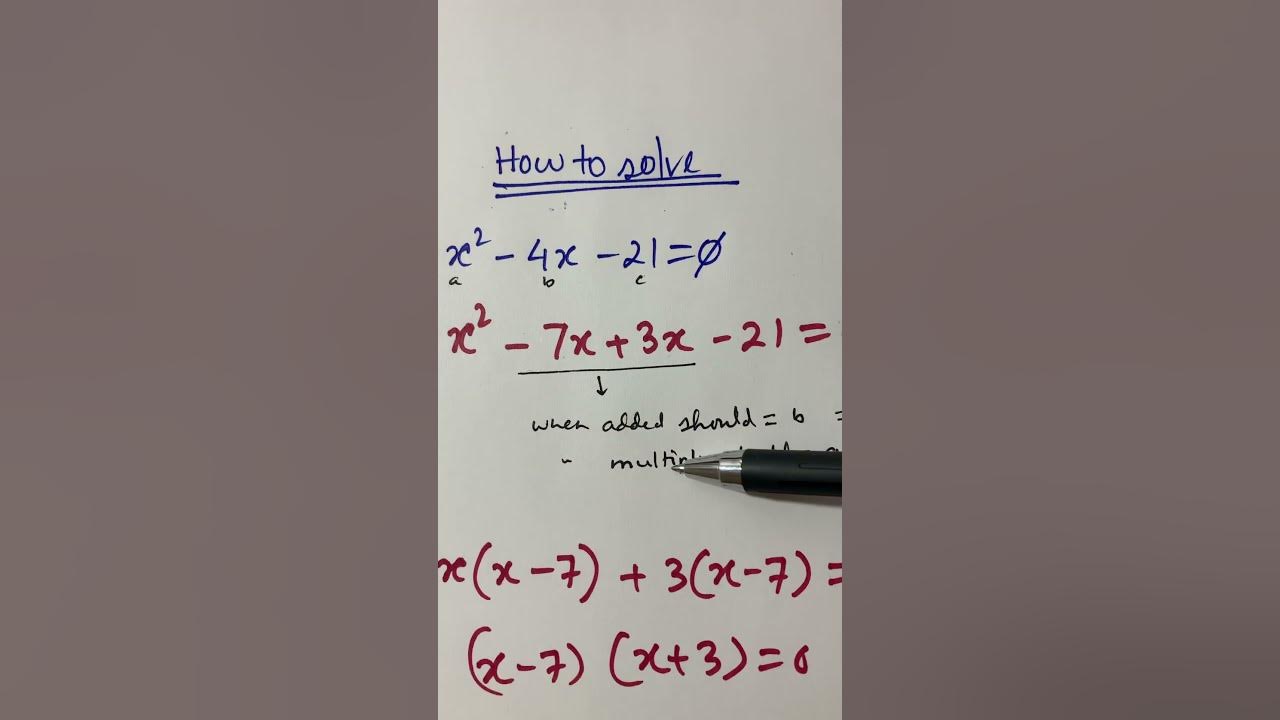 How to solve
x² - 4x - 21 = ∅
a b c
x² - 7x + 3x - 21 =
↓
when added should = b =
" 
x(x-7) + 3(x-7) =
(x-7) (x+3) = 0